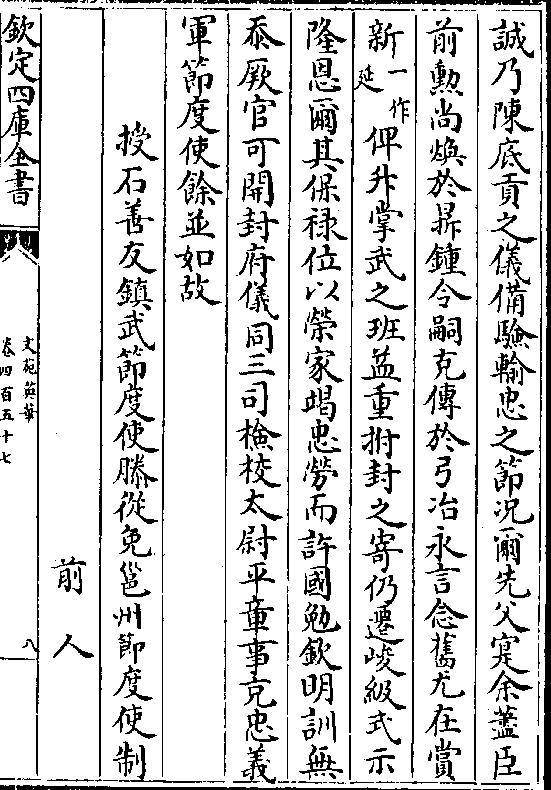 誠乃陳底貢之儀備驗輸忠之節況爾先父寔余藎臣
前勲尚煥於鼎鍾令嗣克傳於弓冶永言念舊尤在賞
新一作延俾升掌武之班益重拊封之寄仍遷峻級式示
隆恩爾其保禄位以榮家竭忠勞而許國勉欽明訓無
忝厥官可開封府儀同三司檢校太尉平章事充忠義
軍節度使餘並如故
授石善友鎮武節度使滕從免邕州節度使制
前人
欽定四庫全書
文苑英華
卷四百五十七
八